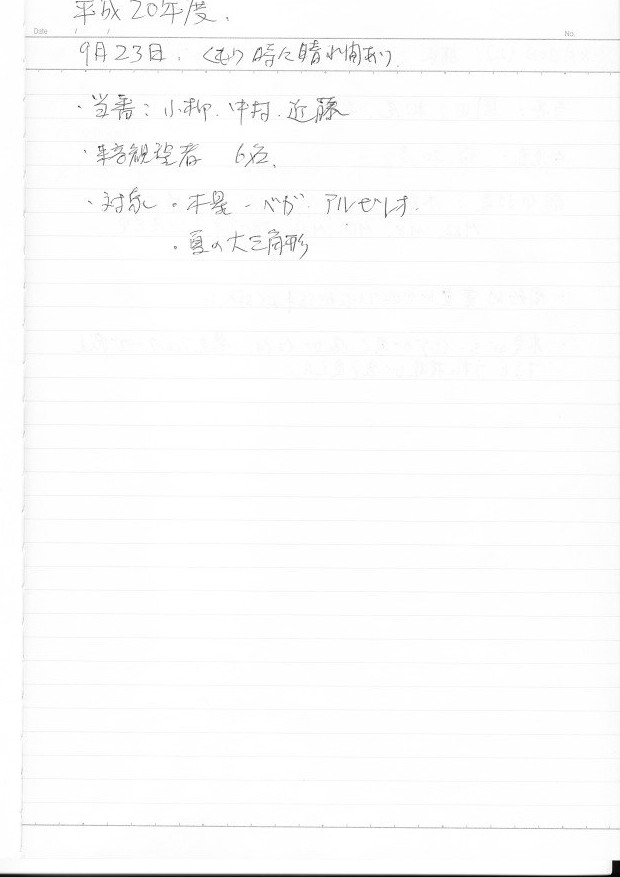 平成20年度.
Date / / No.
9月23日. くもり 時に晴れ間あり
・当番: 小柳. 中村. 近藤
・観望者 6名.
・対象 ・木星 - ベガ. アルビレオ.
・夏の大三角形